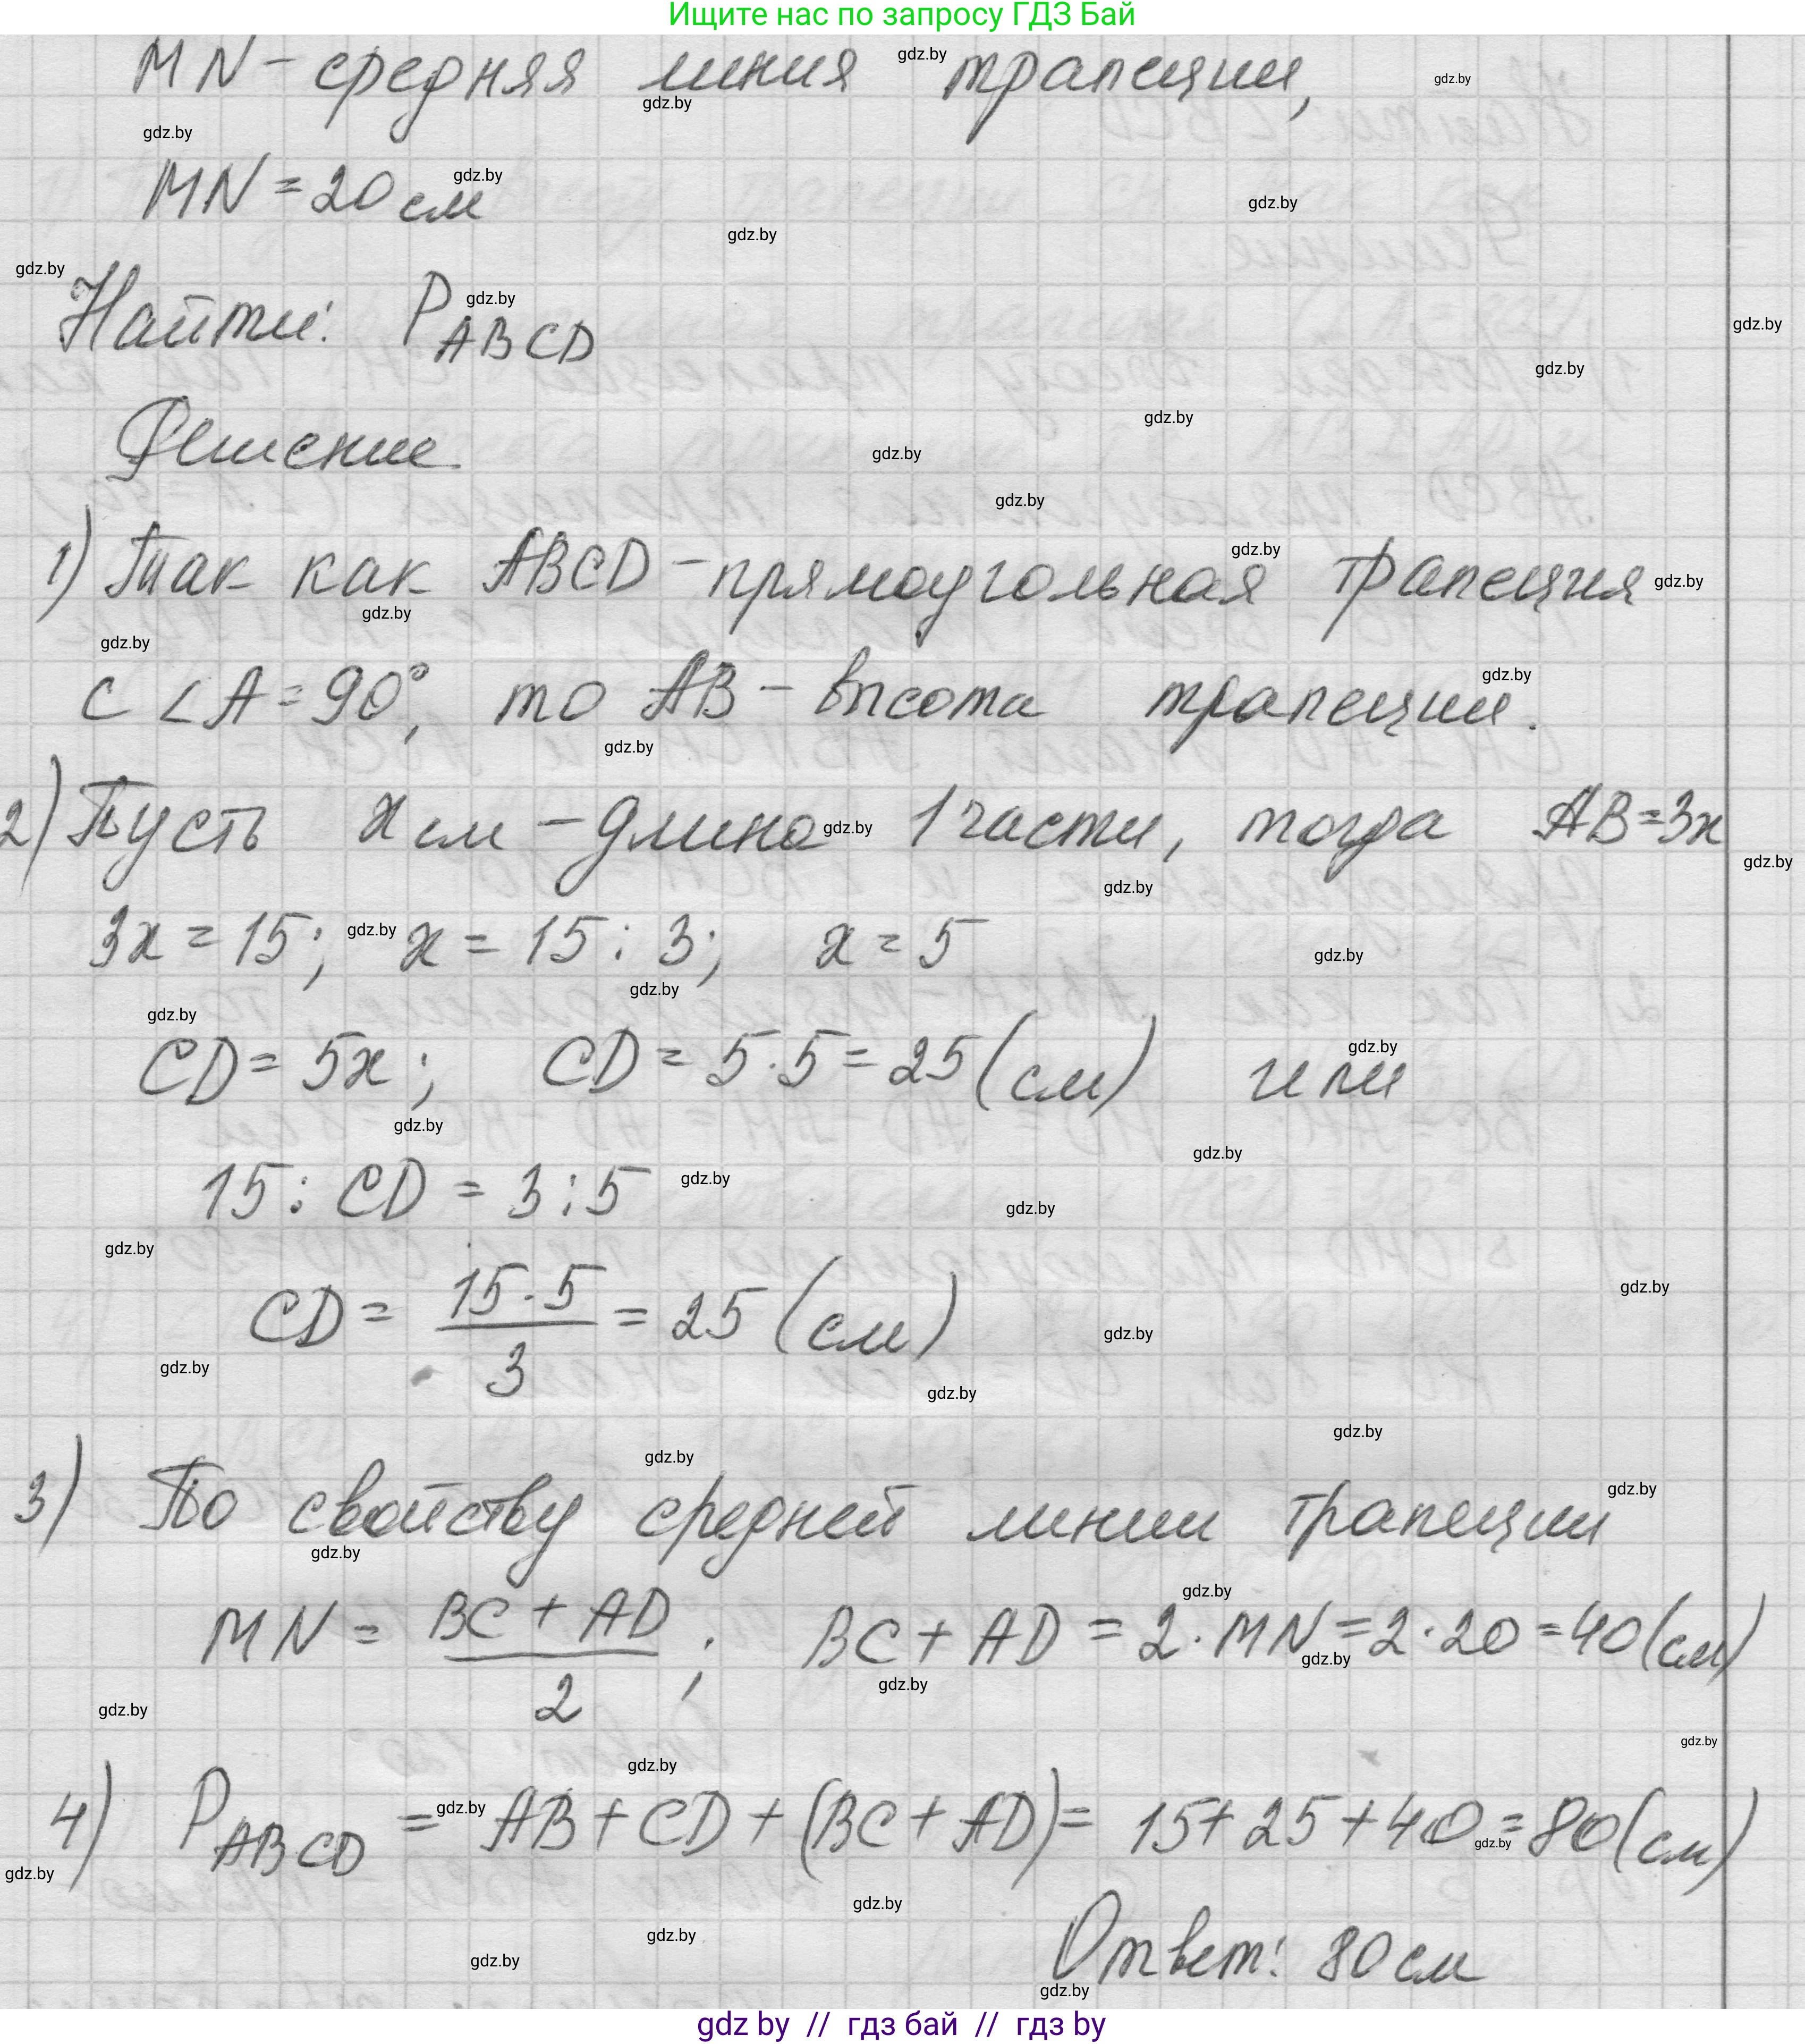 Ищите нас по запросу ГДЗ Бай
MN - средняя линия трапеции,
MN = 20 см
Найти: P ABCD
Решение
1) Так как ABCD - прямоугольная трапеция
с ∠A = 90°, то AB - высота трапеции.
2) Пусть x см - длина 1 части, тогда AB = 3x
3x = 15; x = 15 : 3; x = 5
CD = 5x; CD = 5 · 5 = 25 (см) или
15 : CD = 3 : 5
CD = 15 · 5 / 3 = 25 (см)
3) По свойству средней линии трапеции
MN = BC + AD / 2; BC + AD = 2 · MN = 2 · 20 = 40 (см)
4) P ABCD = AB + CD + (BC + AD) = 15 + 25 + 40 = 80 (см)
Ответ: 80 см
gdz by // гдз бай // гдз by